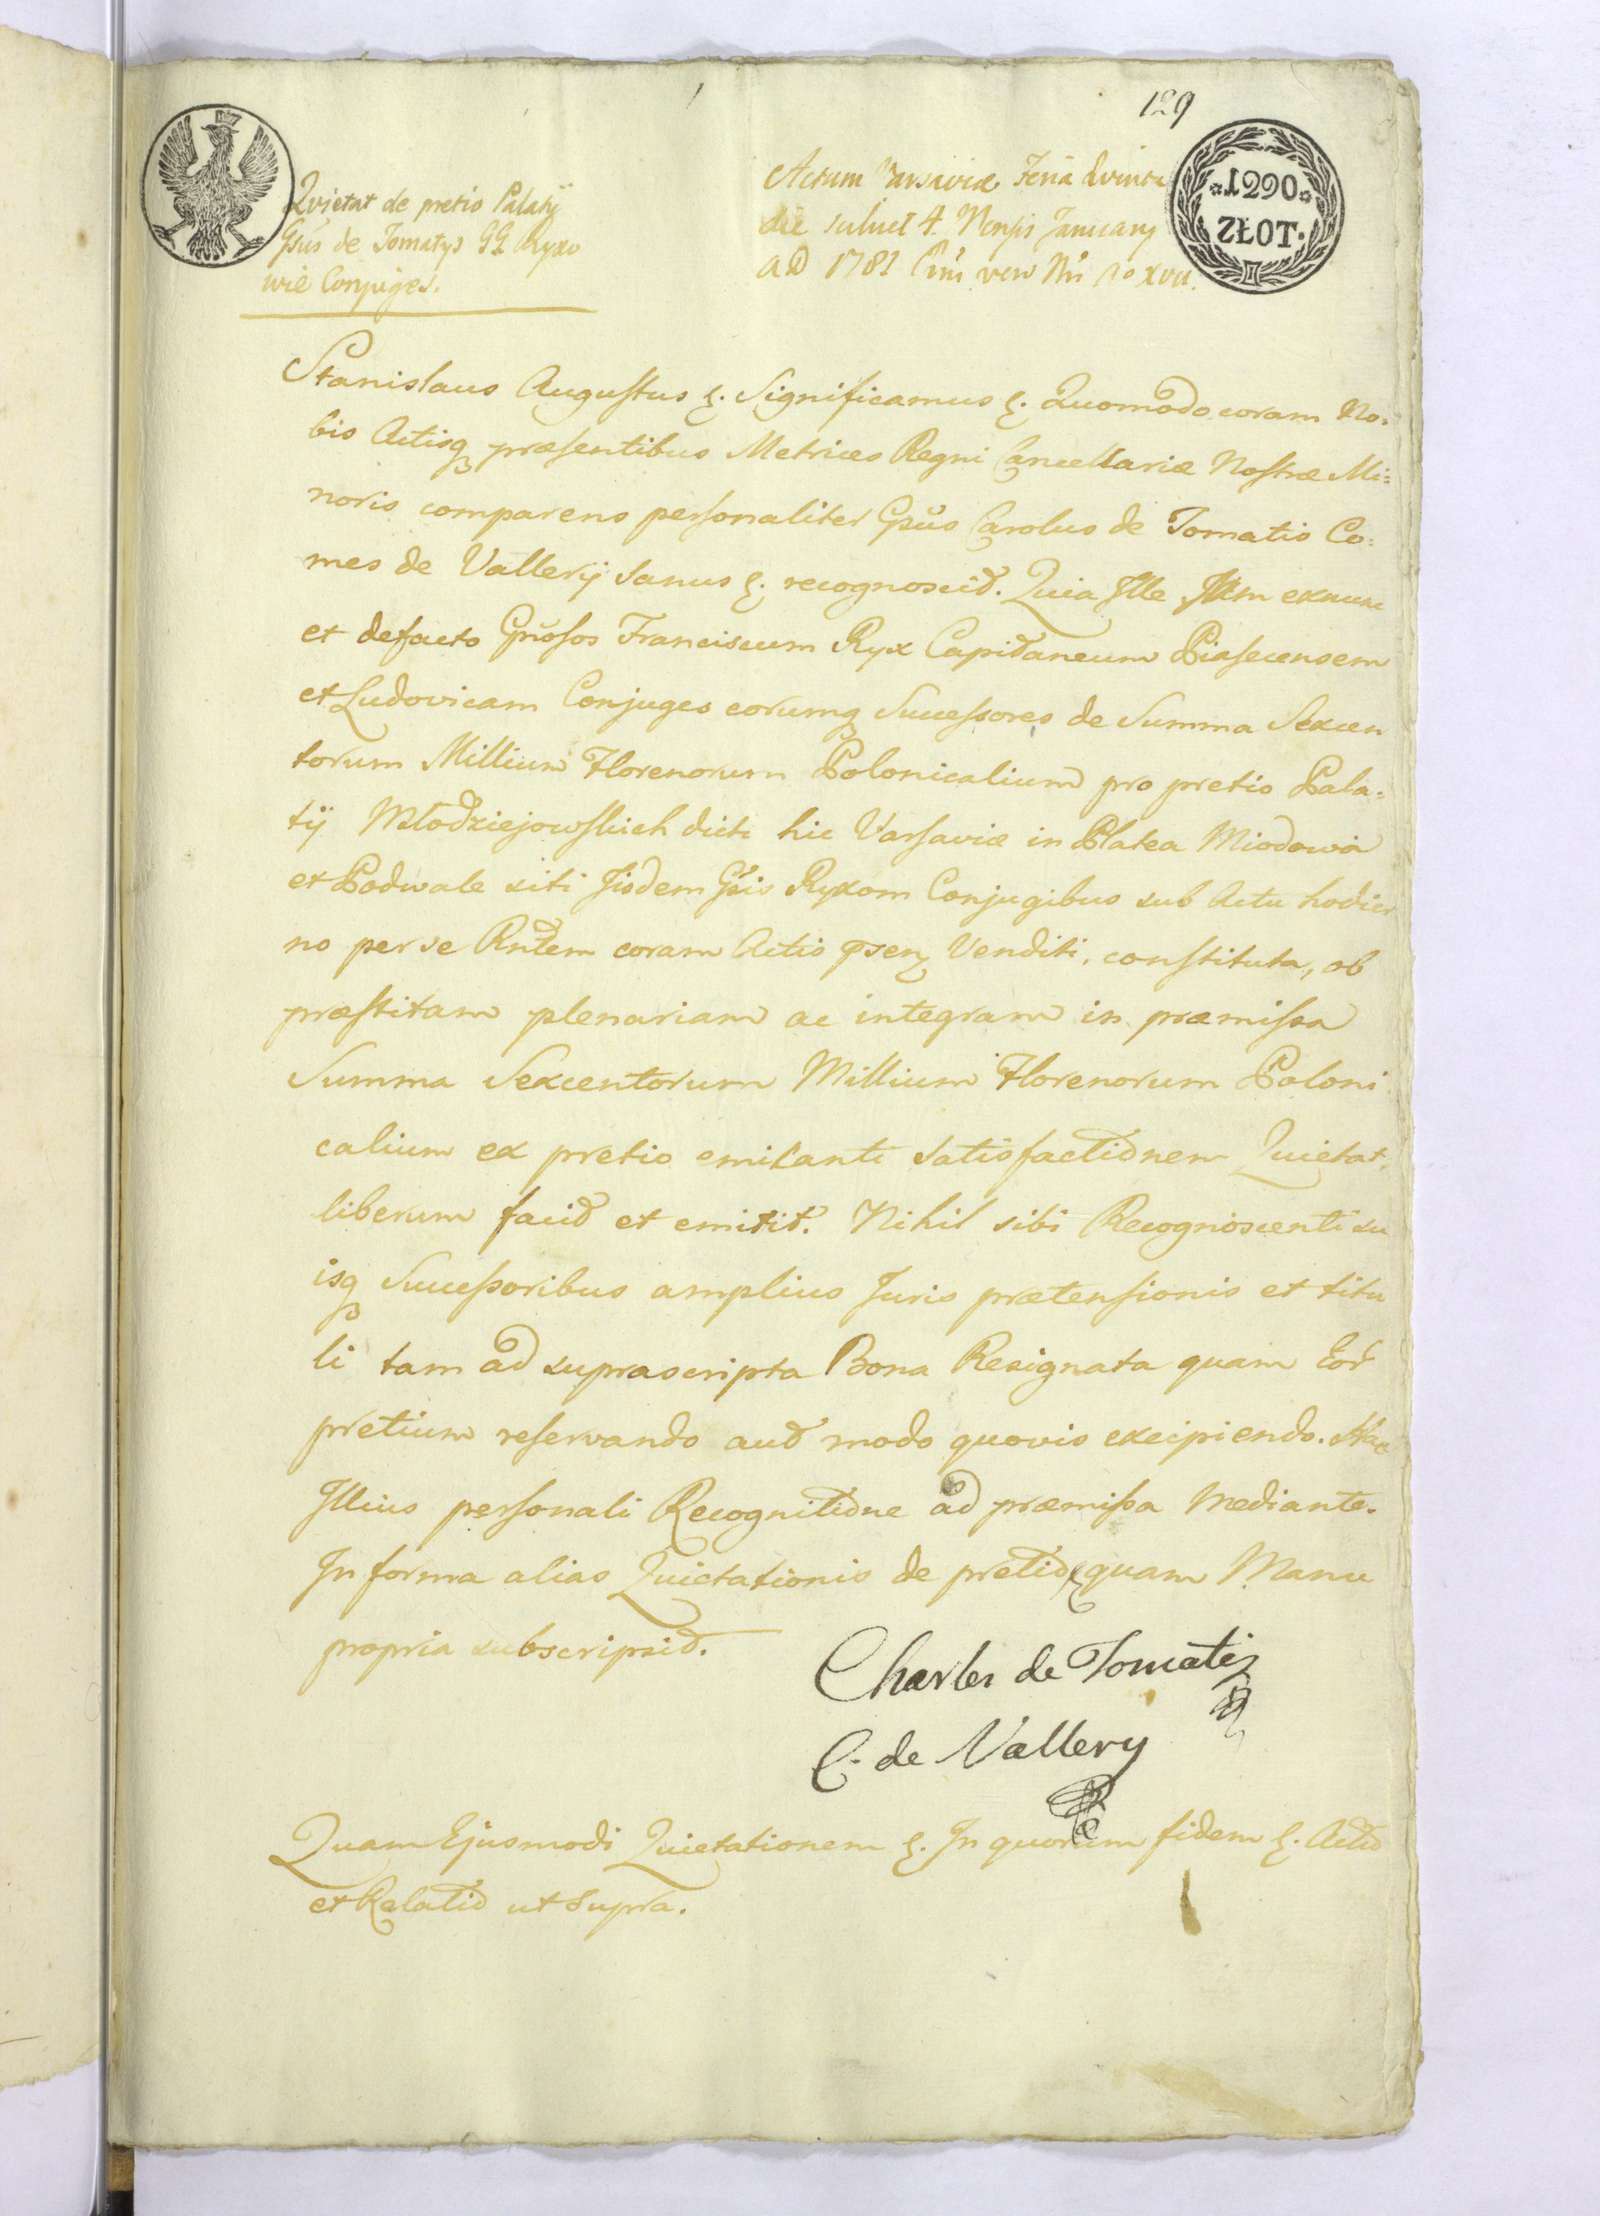 129
Quietat de pretio Palatÿ
Gsus de Tomatys GG Ryxo
wie Conjuges.
Actum Varsaviæ Feria Quinta
die scilicet 4. Mensis Januarÿ
AD 1781
1290
ZŁOT.
Stanislaus Augustus &. Significamus &. Quomodo coram No-
bis Actisq præsentibus Metrices Regni Cancellariæ Nostræ Mi=
noris comparens personaliter Gsus Carolus de Tomatis Co=
mes de Vallerÿ sanus &. recognovit. Quia Ille exnunc
et defacto Gnosos Franciscum Ryx Capitaneum Piasecensem
et Ludovicam Conjuges eorumq Successores de Summa Sexcen
torum Millium Florenorum Polonicalium pro pretio Pala=
tÿ Młodziejowskich dicti hic Varsaviæ in Platea Miodowa
et Podwale siti Jisdem Gsis Ryxom Conjugibus sub Actu hodier
no per se Rntem coram Actis psen Venditi, constituta, ob
præstitam plenariam ac integram in præmissa
Summa Sexcentorum Millium Florenorum Poloni
calium ex pretio emitanti satisfactionem Quietat,
liberum facit et emitit. Nihil sibi Recognoscenti su
isq Successoribus amplius Juris prætensionis et titu
li tam ad suprascripta Bona Resignata quam Eor
pretium reservando aut modo quovis excipiendo. Hac
Illius personali Recognitione ad præmissa Mediante.
In forma alias Quietationis de pretio & quam Manu
propria subscripsit.
Charles de Tomatis
C. de Vallery
Quam Ejusmodi Quietationem &. In quorum fidem &. Actio
et Relatio ut supra.